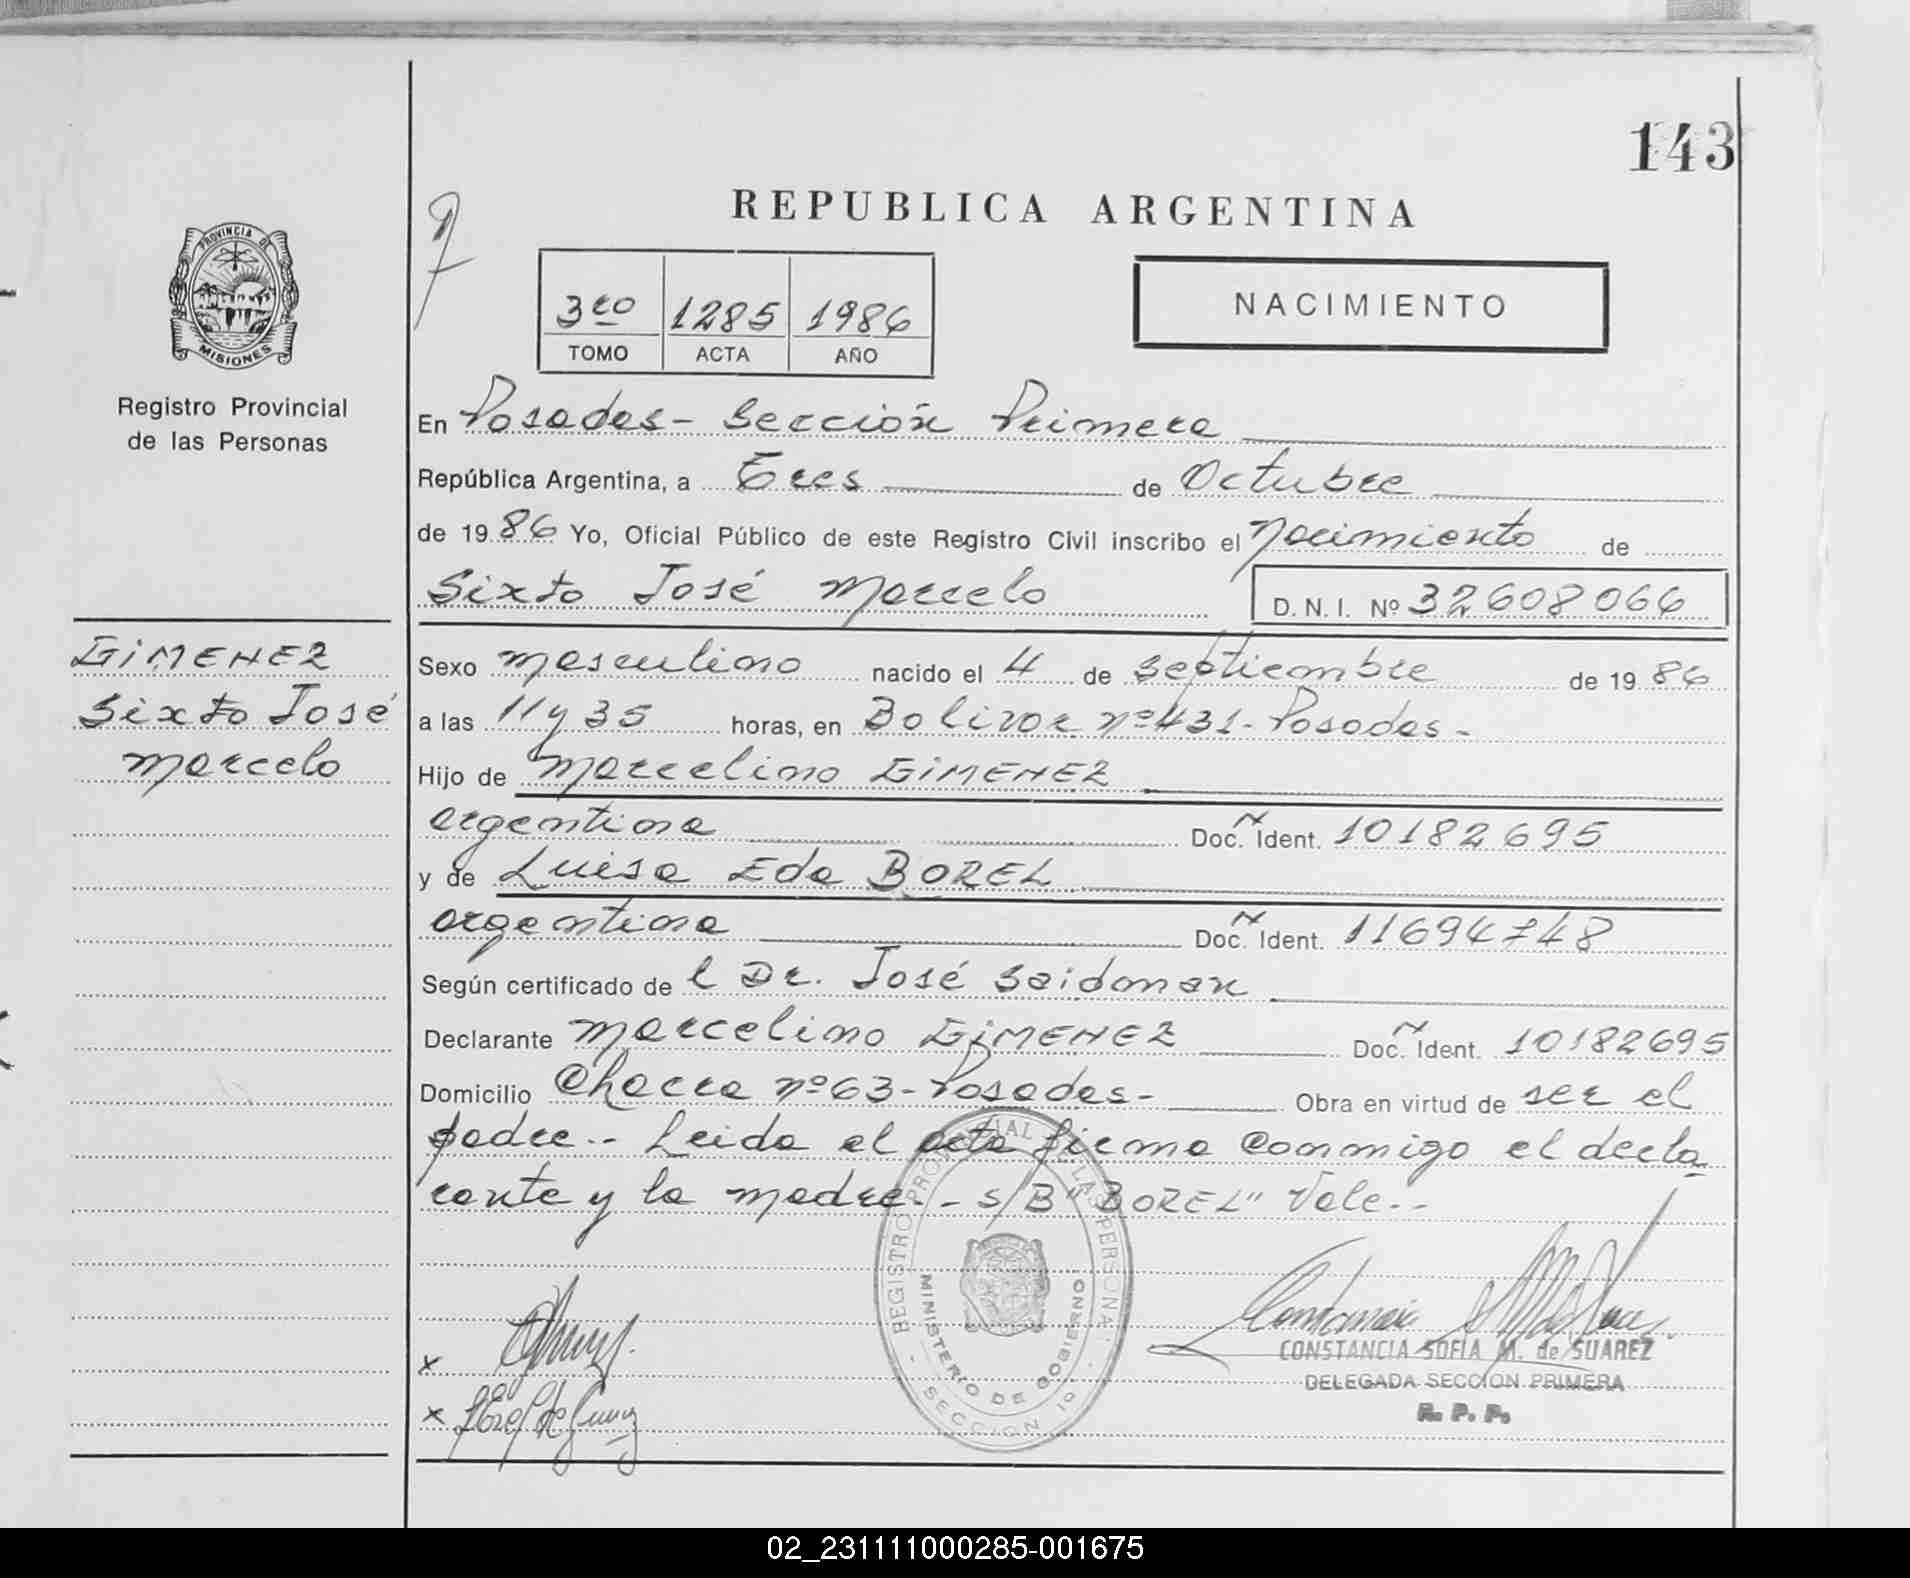 143
REPUBLICA ARGENTINA
PROVINCIA DE
MISIONES
Registro Provincial
de las Personas
3ro 1285 1986
TOMO ACTA AÑO
NACIMIENTO
En Posadas - Sección Primera
República Argentina, a Tres de Octubre
de 1986 Yo, Oficial Público de este Registro Civil inscribo el Nacimiento de
Sixto José Marcelo D.N.I. Nº 32608066
GIMENEZ
Sixto José
Marcelo
Sexo masculino nacido el 4 de septiembre de 1986
a las 11 y 35 horas, en Bolivar nº 431 - Posadas -
Hijo de Marcelino GIMENEZ
argentina Doc. Ident. 10182695
y de Luisa Eda BOREL
argentina Doc. Ident. 11694748
Según certificado de l Dr. José Saidman
Declarante Marcelino GIMENEZ Doc. Ident. 10182695
Domicilio Chacra nº 63 - Posadas - Obra en virtud de ser el
padre.- Leida el acta firma conmigo el decla
rante y la madre.- S/B "BOREL" Vale.-
REGISTRO PROVINCIAL DE LAS PERSONAS
MINISTERIO DE GOBIERNO
SECCION 1º
x
x
CONSTANCIA SOFIA M. de SUAREZ
DELEGADA SECCION PRIMERA
R. P. P.
02_231111000285-001675